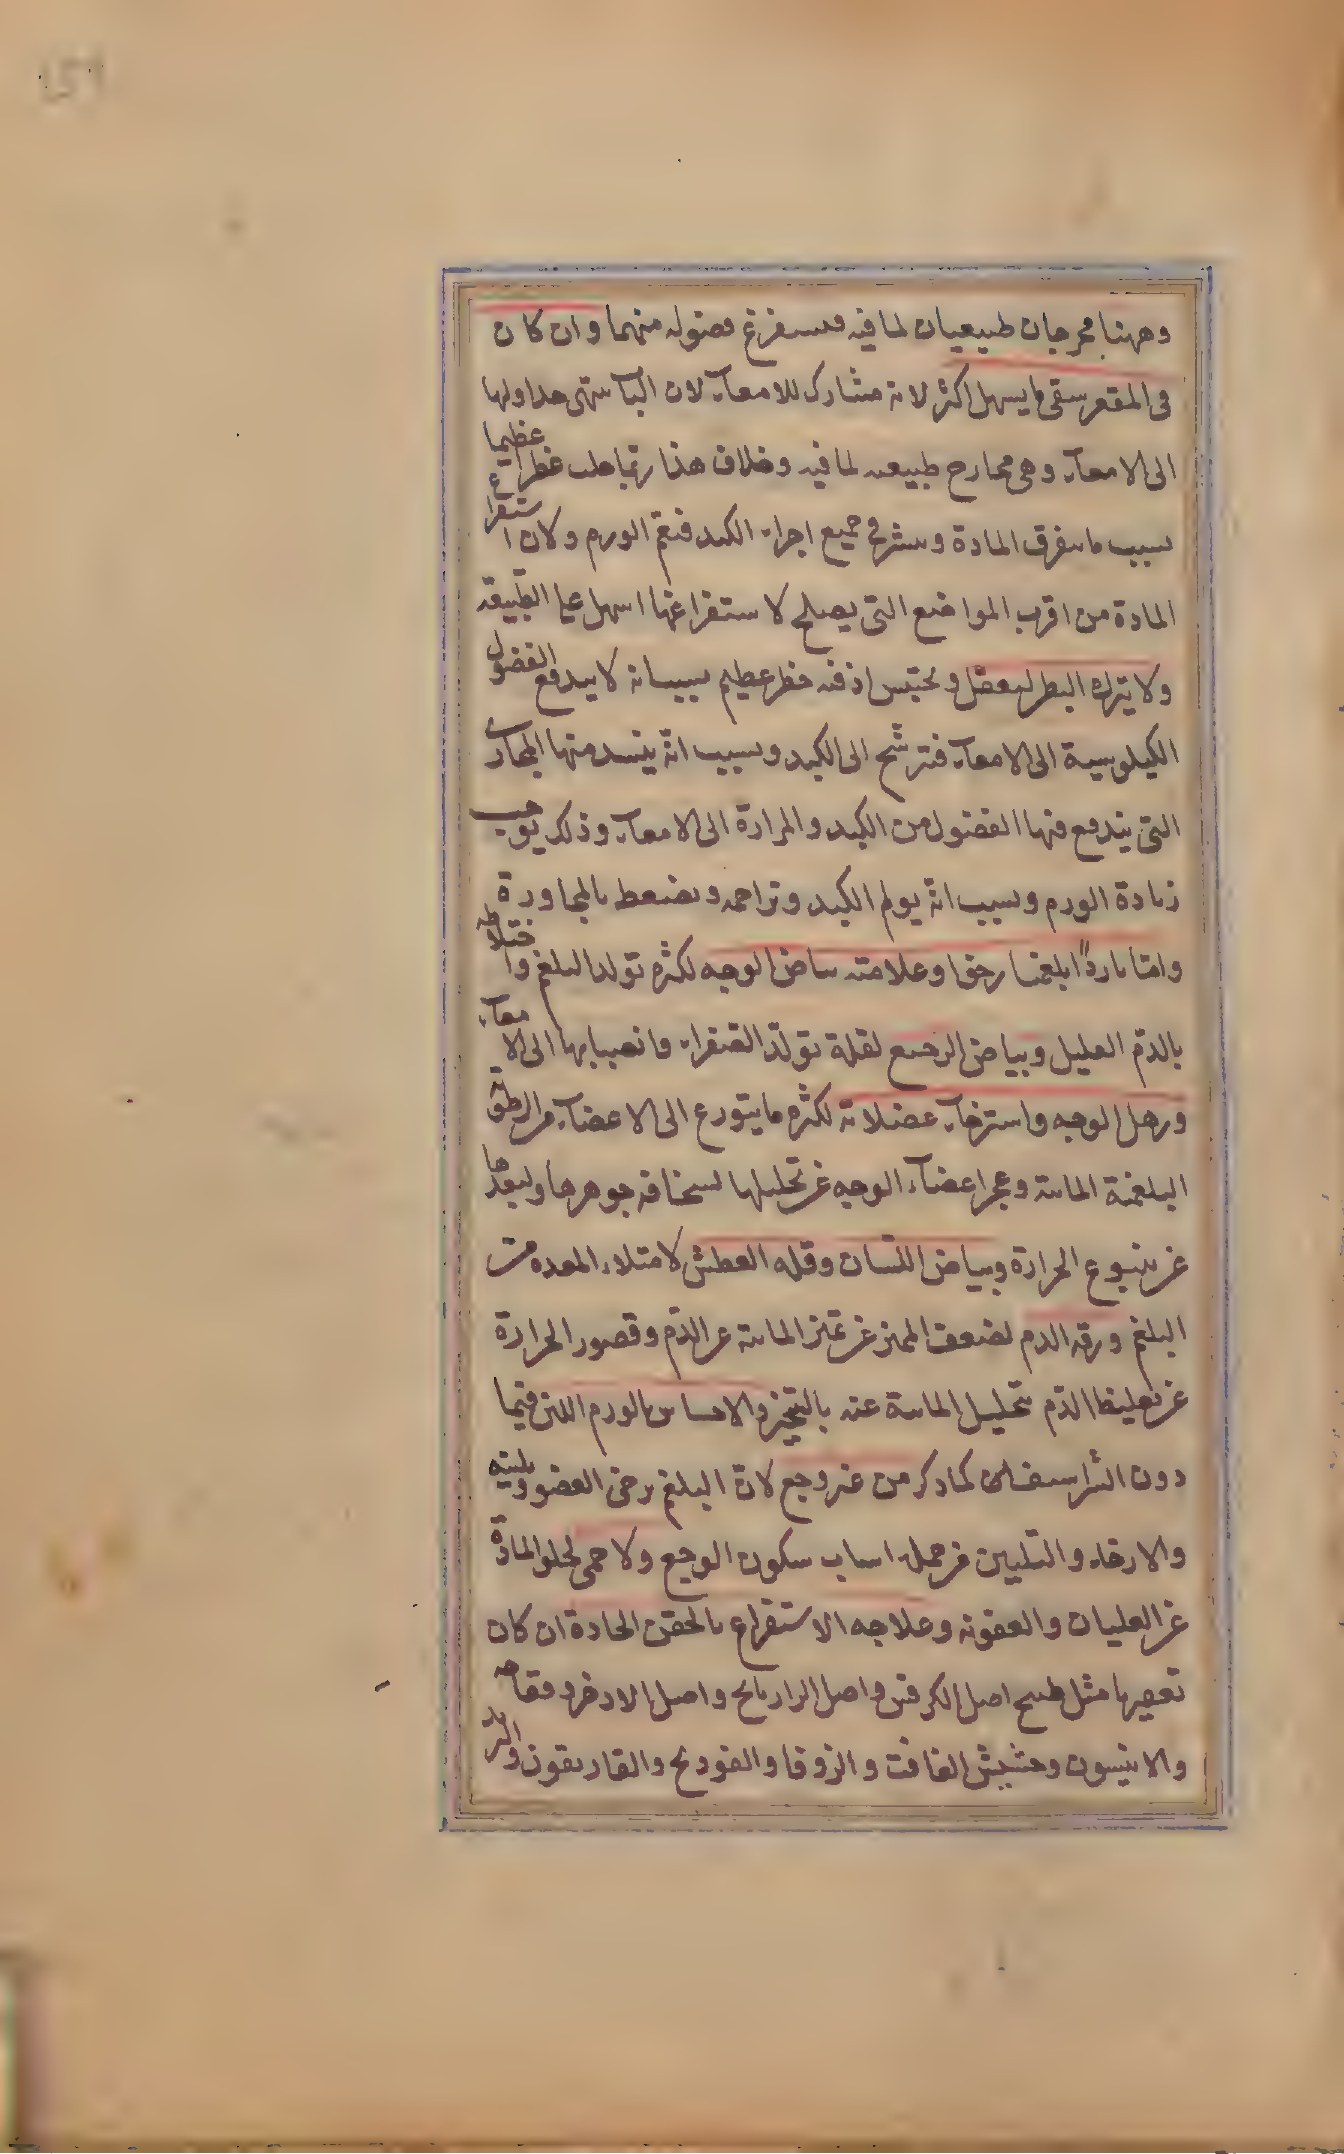 151
وههنا مخرجان طبيعيان لما فيه فيستفرغ فضوله منهما وان كان
فى المقعر سقى ما يسهل اكثر لانه مشارك للامعاء لان الباب تنتهى جداولها
الى الامعاء وهى مخارج طبيعيه لما فيه وخلاف هذا ربما جلب خطرا عظيما
بسبب ما يتفرق المادة وينتشر فى جميع اجزاء الكبد فيعم الورم ولان استفراغ
المادة من اقرب المواضع التى يصلح لاستفراغها اسهل على الطبيعة
ولا يترك البطن ليعقل ويحتبس اذ فيه خطر عظيم بسبب انه لا يندفع الفضول
الكيلوسية الى الامعاء فترشح الى الكبد وبسبب انه ينسد منها المجارى
التى يندفع فيها الفضول من الكبد والمرارة الى الامعاء وذلك يوجب
زيادة الورم وبسبب انه يولم الكبد وتزاحمه ويضغط بالمجاورة
واما باردا بلغميا رخوا وعلامته بياض الوجه لكثرة تولد البلغم واختلاطه
بالدم العليل وبياض الرجيع لقلة تولد الصفراء وانصبابها الى الامعاء
ورهل الوجه واسترخاء عضلاته لكثرة ما يتورع الى الاعضاء من الرطوبة
البلغمية المائية وعجز اعضاء الوجه عن تحليلها لسخافة جوهرها ولبعدها
عن ينبوع الحرارة وبياض اللسان وقلة العطش لامتلاء المعدة من
البلغم ورقة الدم لضعف المميز عن تميز المائية عن الدم وقصور الحرارة
عن تغليظ الدم بتحليل المائية عنه بالتبخير والاحساس بالورم اللين فيما
دون الشراسيف كما ذكر من غير وجع لان البلغم يرخى العضو ويلينه
والارخاء والتليين من جملة اسباب سكون الوجع ولا حمى لخلو المادة
عن الغليان والعفونة وعلاجه الاستفراغ بالحقن الحادة ان كان
تقعيرها مثل طبيخ اصل الكرفس واصل الرازيانج واصل الاذخر وفقاحه
والانيسون وحشيش الغافت والزوفا والفودنج والغاريقون والتربد